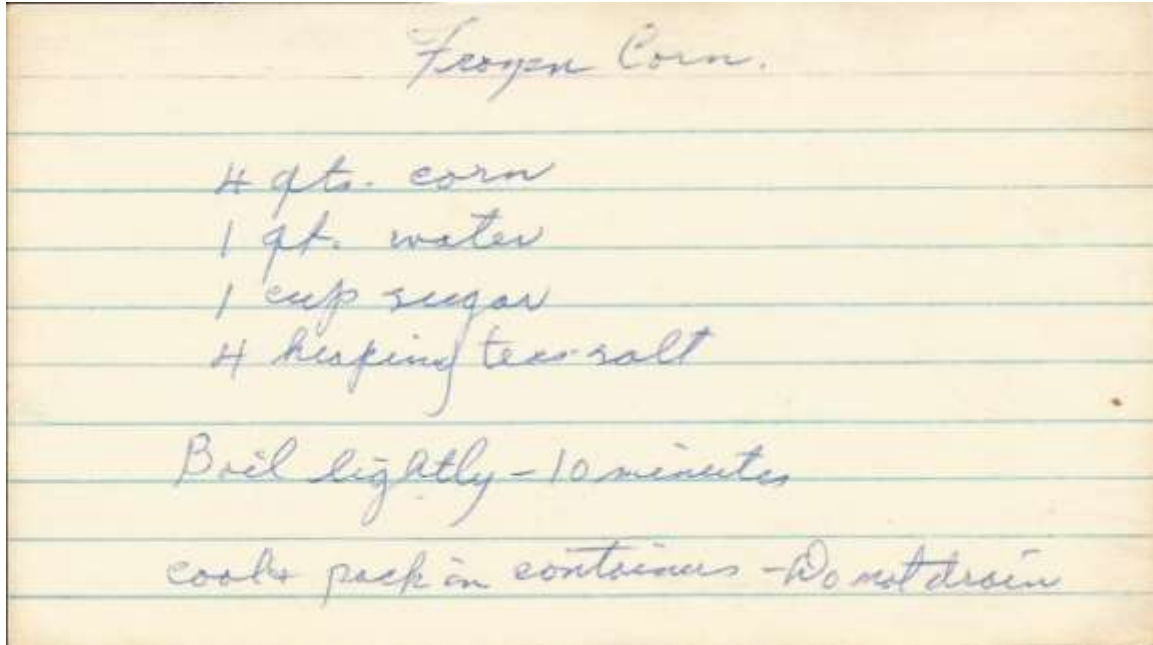 Frozen Corn.
4 qts. corn
1 qt. water
1 cup sugar
4 heaping teas salt
Boil lightly - 10 minutes
cool & pack in containers - Do not drain